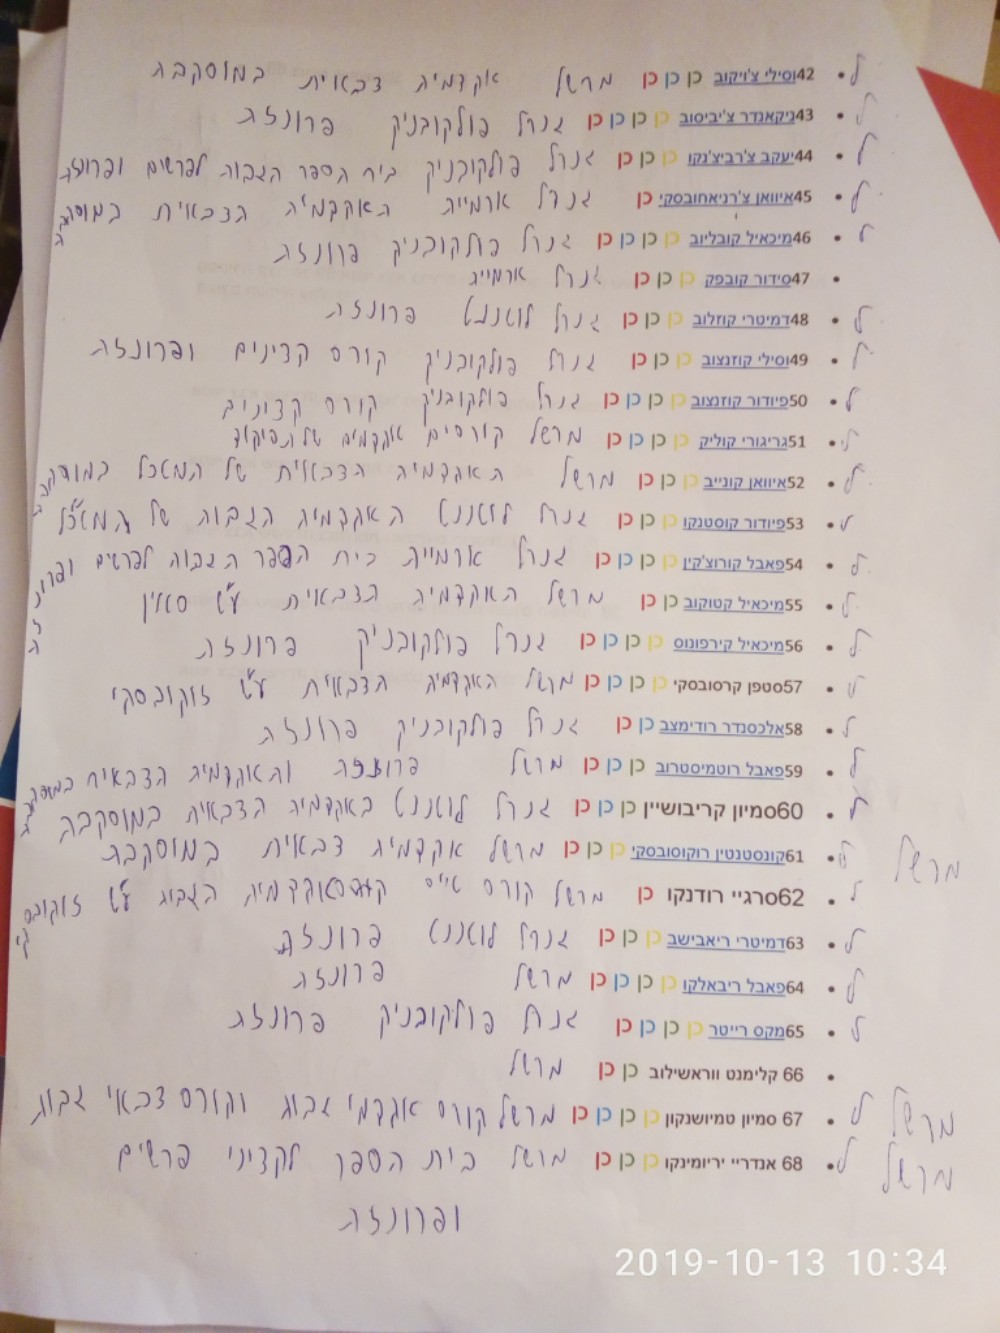 • 42וסילי צ'ויקוב כן כן כן מרשל אקדמית צבאית במוסקבה
• 43ניקאנדר צ'יביסוב כן כן כן כן גנרל פולקובניק פרונזה
• 44יעקב צ'רביצ'נקו כן כן כן גנרל פולקובניק בית הספר הגבוה לפרשים ופרונזה
• 45איוואן צ'רניאחובסקי כן גנרל ארמייה האקדמיה הצבאית במוסקבה
• 46מיכאיל קובליוב כן כן כן כן גנרל פולקובניק פרונזה
• 47סידור קובפק כן כן כן גנרל ארמייה
• 48דמיטרי קוזלוב כן כן כן גנרל לוטננט פרונזה
• 49וסילי קוזנצוב כן כן כן גנרל פולקובניק קורס קצינים ופרונזה
• 50פיודור קוזנצוב כן כן כן כן גנרל פולקובניק קורס קצינים
• 51גריגורי קוליק כן כן כן כן מרשל קורסים אקדמים של הפיקוד
• 52איוואן קונייב כן כן כן מרשל האקדמיה הצבאית של המטכל במוסקבה
• 53פיודור קוסטנקו כן כן כן גנרל לוטננט האקדמיה הגבוה של המטכ"ל
• 54פאבל קורוצ'קין כן כן כן כן גנרל ארמייה בית הספר הגבוה לפרשים ופרונזה
• 55מיכאיל קטוקוב כן כן מרשל האקדמיה הצבאית ע"ש סטלין
• 56מיכאיל קירפונוס כן כן כן כן גנרל פולקובניק פרונזה
• 57סטפן קרסובסקי כן כן כן כן מרשל האקדמיה הצבאית ע"ש זוקובסקי
• 58אלכסנדר רודימצב כן כן גנרל פולקובניק פרונזה
• 59פאבל רוטמיסטרוב כן כן כן מרשל פרונזה והאקדמיה הצבאית במוסקבה
• 60סמיון קריבושיין כן כן כן גנרל לוטננט באקדמיה הצבאית במוסקבה
• 61קונסטנטין רוקוסובסקי כן כן כן מרשל אקדמית צבאית במוסקבה מרשל
• 62סרגיי רודנקו כן מרשל קורס טייס הגבוה ע"ש זוקובסקי
• 63דמיטרי ריאבישב כן כן כן גנרל לוטננט פרונזה
• 64פאבל ריבאלקו כן כן כן כן מרשל פרונזה
• 65מקס רייטר כן כן כן כן גנרל פולקובניק פרונזה
• 66 קלימנט ווראשילוב כן כן מרשל
• 67 סמיון טמיושנקון כן כן כן כן מרשל קורס אקדמי גבוה וקורס צבאי גבוה מרשל
• 68 אנדריי יריומינקו כן כן כן מרשל בית הספר לקציני פרשים מרשל
ופרונזה
2019-10-13 10:34